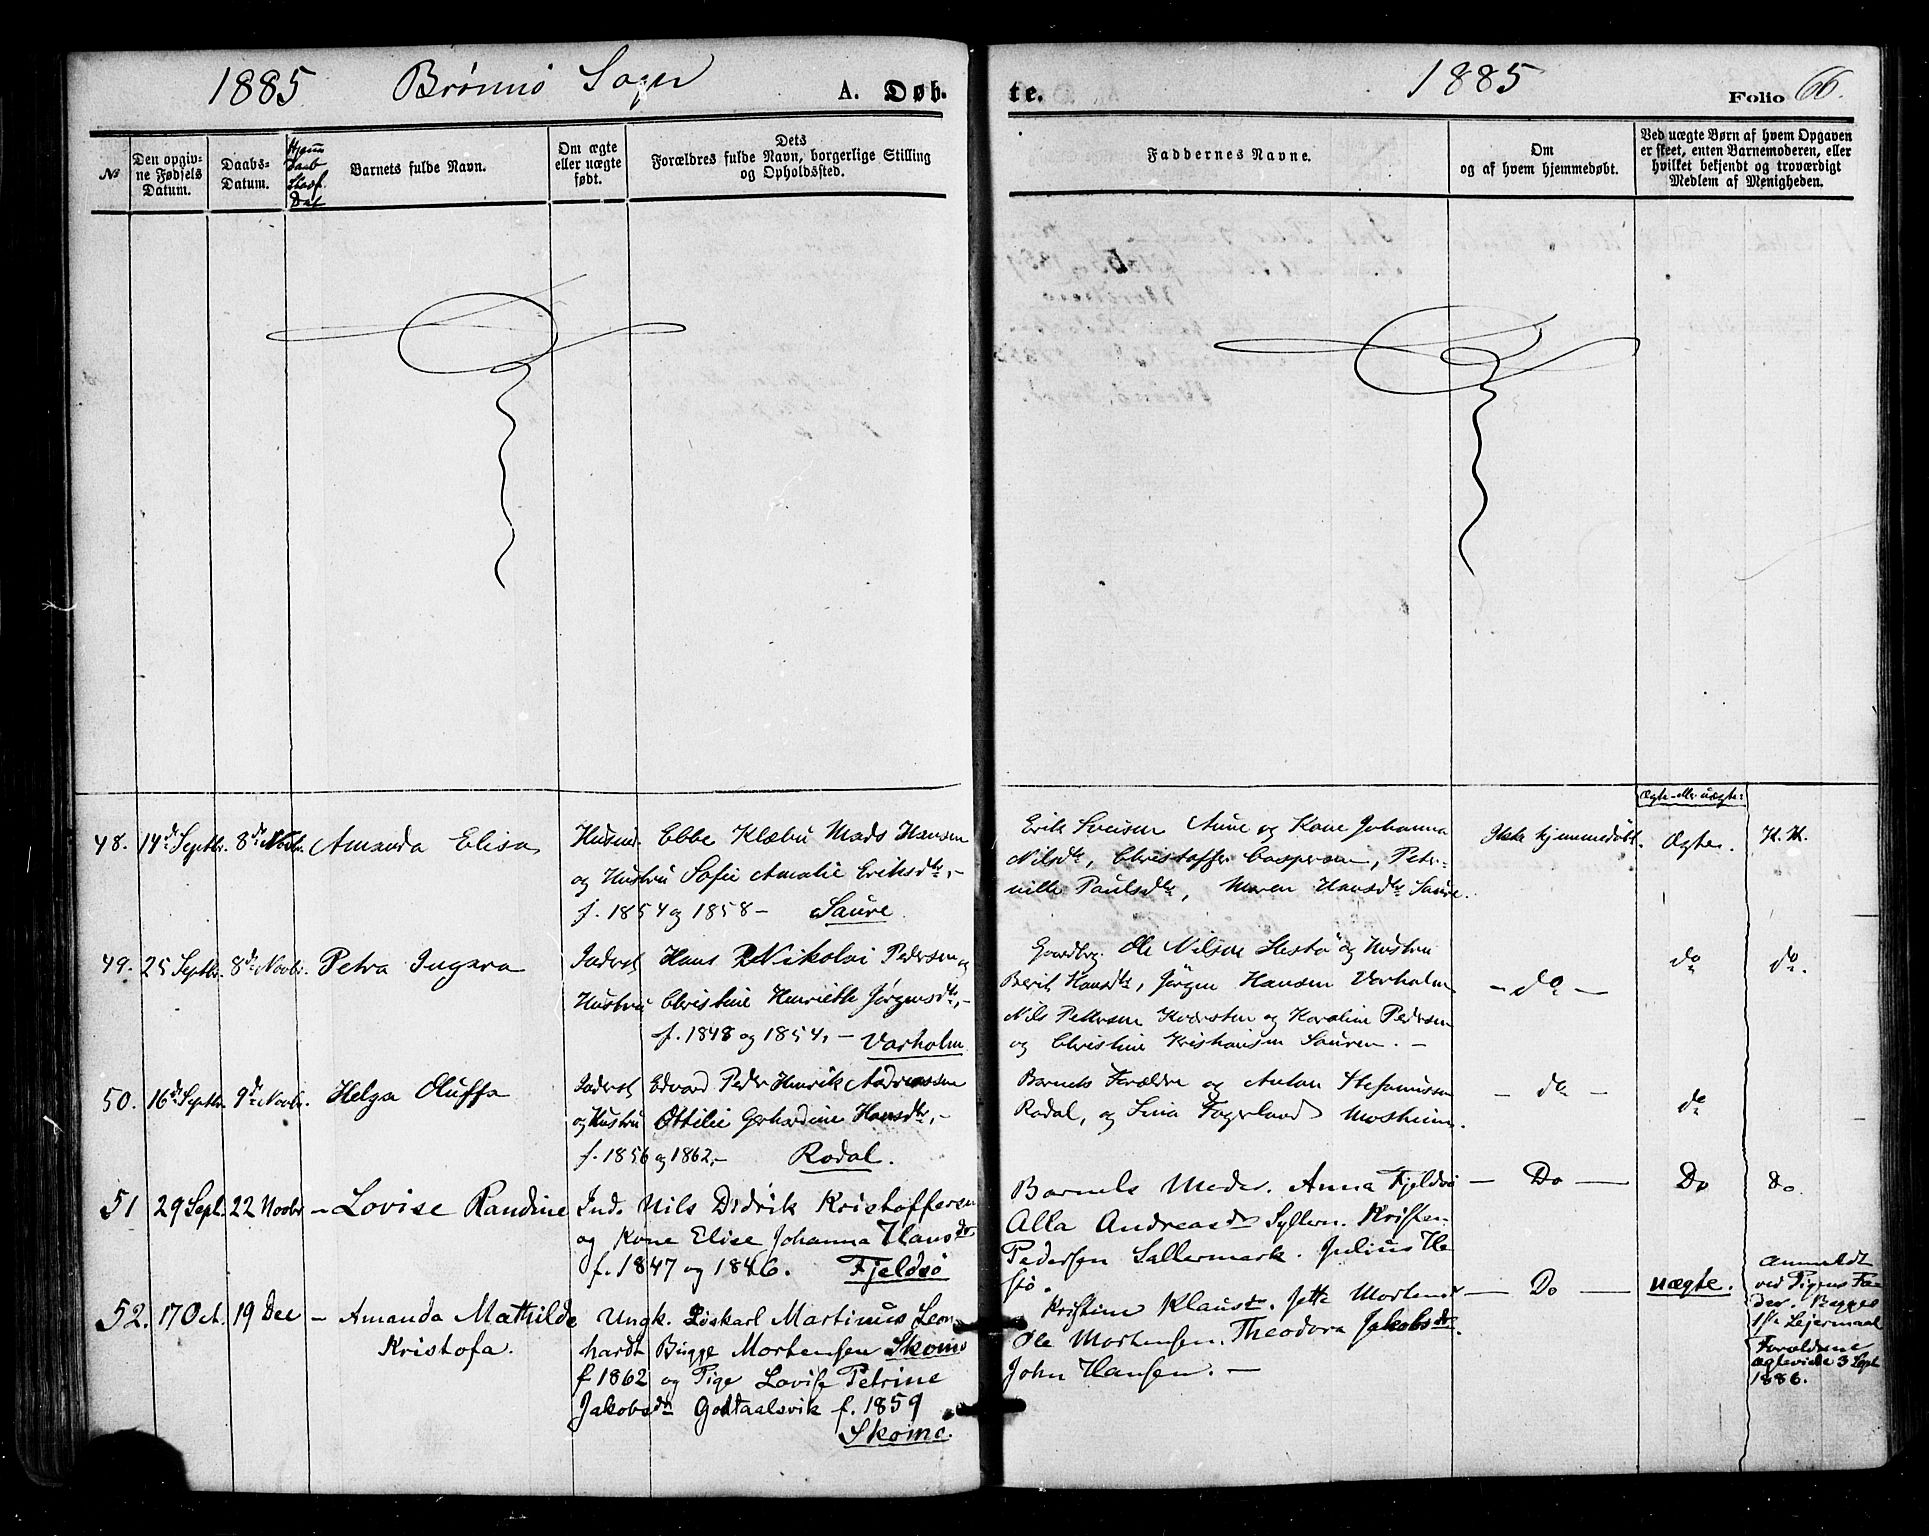 1885 Brönnö Sogn A. Døb-
te. 1885 Folio 66.
№
Den opgiv-
ne Fødsels
Datum.
Daabs-
Datum.
Hjem
Daab
Stadf.
Dat
Barnets fulde Navn.
Om ægte
eller uægte
født.
Dets
Forældres fulde Navn, borgerlige Stilling
og Opholdssted.
Faddernes Navne.
Om
og af hvem hjemmedøbt.
Ved uægte Børn af hvem Opgaven
er skeet, enten Barnemoderen, eller
hvilket bekjendt og troværdigt
Medlem af Menigheden.
Ægte eller uægte:
48. 14de Septbr. 8de Novbr. Amanda Elisa
Husmd. Ebbe Klæbu Mads Hansen
og Hustru Sofie Amalie Eriksdtr,-
f. 1854 og 1858 - Saure.
Erik Sveisen Aune og Kone Johanna
Nilsdtr, Christoffer Caspersen, Peter-
nille Paulsdtr, Maren Hansdtr Saure.
Ikke hjemmedöbt.
Ægte.
K. K.
49. 25 Septbr. 8de Novbr. Petra Ingara
Inderst Hans Nikolai Pedersen og
Hustru Christine Henriette Jørgensdtr,-
f. 1848 og 1854,- Varholm
Gaardbrg. Ole Nilsen Hestö og Hustru
Berit Hansdtr, Jörgen Hansen Varholm
Nils Pettersen og Karoline Pedersen
og Christine Kristiansen Sauren. -
- do -
do
do.
50. 16de Septbr. 9de Novbr. Helga Oluffa
Inderst Edvard Peder Henrik Andreassen
og Hustru Ottilie Gerhardine Hansdtr,-
f. 1856 og 1862,- Rodal.
Barnets Forældre og Anton Stefanussen
Rodal, og Lina Fagerland Mosheim.
- do -
do
51 29 Sept. 22 Novbr - Lovise Randine
Ind. Nils Didrik Kristoffersen
og Kone Elise Johanna Hansdtr
f. 1847 og 1846. Fjeldsö
Barnets Moder. Anna Fjeldsö
Alla Andreasdtr Syltern. Kristen
Pedersen Sallermark. Julius He-
stö.
- Do -
Do
do.
52. 17 Oct. 19 Dec - Amanda Mathilde
Kristofa.
Ungk. Löskarl Martinus Leon-
hardt Bugge Mortensen Skomo
f 1862 og Pige Lovise Petrine
Jakobsdtr Godtaalsvik f. 1859
Skomo.
Kristine Klausdtr. Jette Mortensdtr
Ole Mortensen. Theodora Jakobsdtr.
John Hansen. -
- Do -
uægte.
Anmeldt
ved Pigens Fa-
der. Begges
1ste Lejermaal
Forældrene
ægteviede 3 Sept
1886.